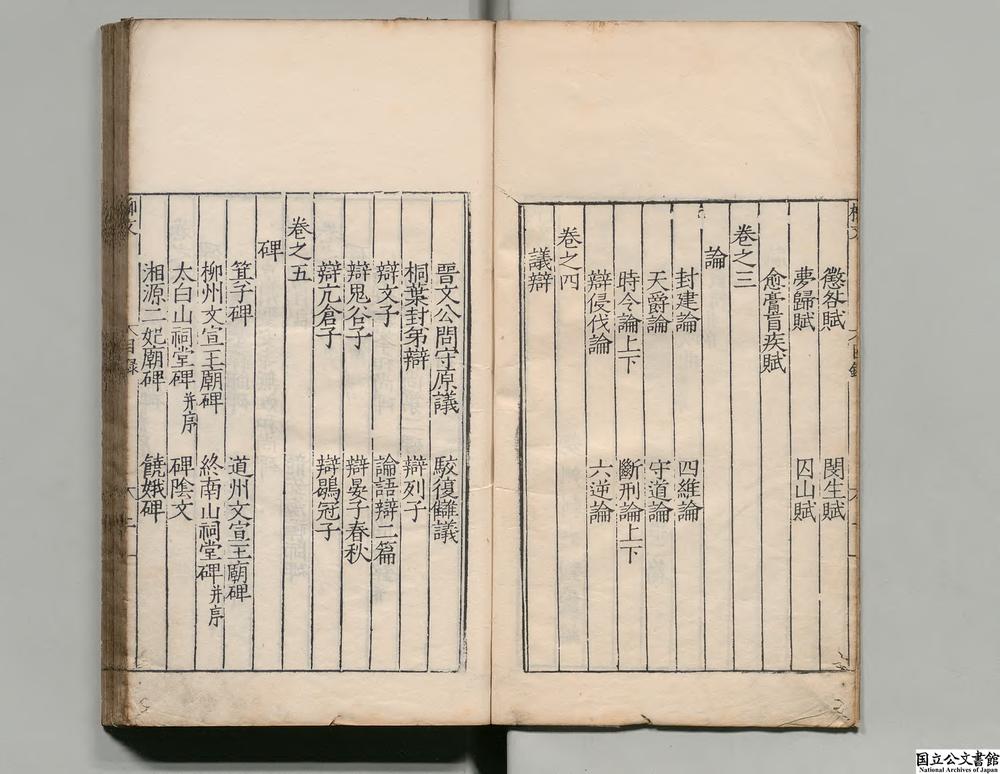 懲咎賦　閔生賦
夢歸賦　囚山賦
愈膏肓疾賦
卷之三
論
封建論　四維論
天爵論　守道論
時令論上下　斷刑論上下
辯侵伐論　六逆論
卷之四
議辯
晋文公問守原議　駮復讎議
桐葉封弟辯　辯列子
辯文子　論語辯二篇
辯鬼谷子　辯晏子春秋
辯亢倉子　辯鶡冠子
卷之五
碑
箕子碑　道州文宣王廟碑
柳州文宣王廟碑　終南山祠堂碑并序
太白山祠堂碑并序　碑陰文
湘源二妃廟碑　饒娥碑
柳文　目録
国立公文書館
National Archives of Japan